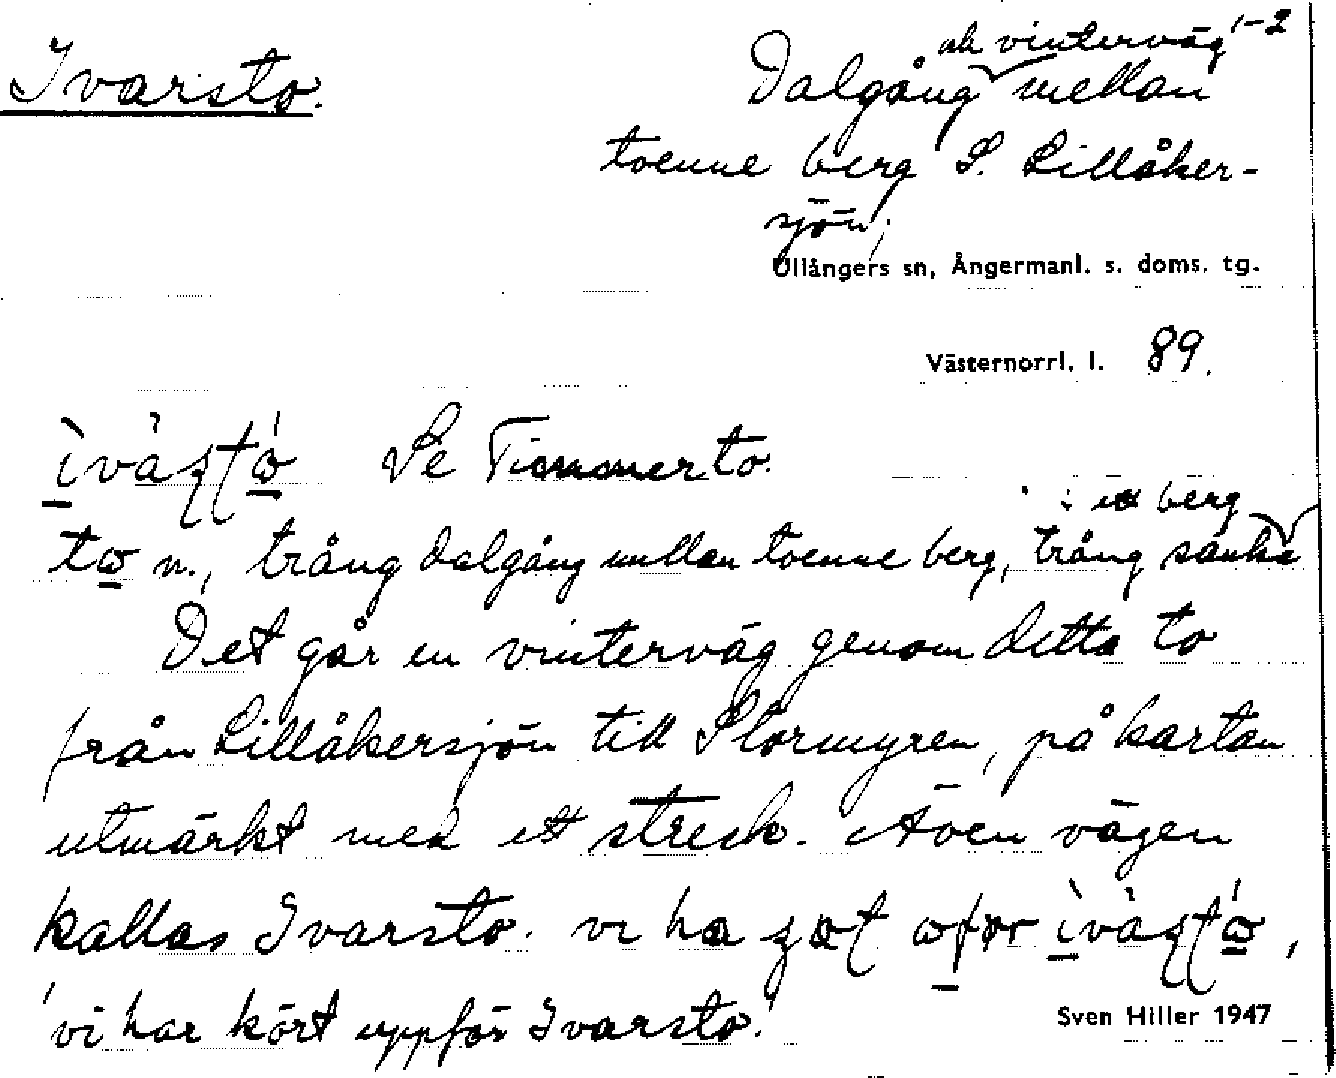 Ivarsto.
1-2
och vinterväg
Dalgång mellan
tvenne berg S. Lillåker-
sjön;
Ullångers sn, Ångermanl. s. doms. tg.
Västernorrl. l. 89.
Se Timmerto.
i ett berg
n., trång dalgång mellan tvenne berg, trång sänka
Det går en vinterväg genom detta to
från Lillåkersjön till Stormyren, på kartan
utmärkt med ett streck. Även vägen
kallas Ivarsto. vi ha
'vi har kört uppför Ivarsto.'
Sven Hiller 1947